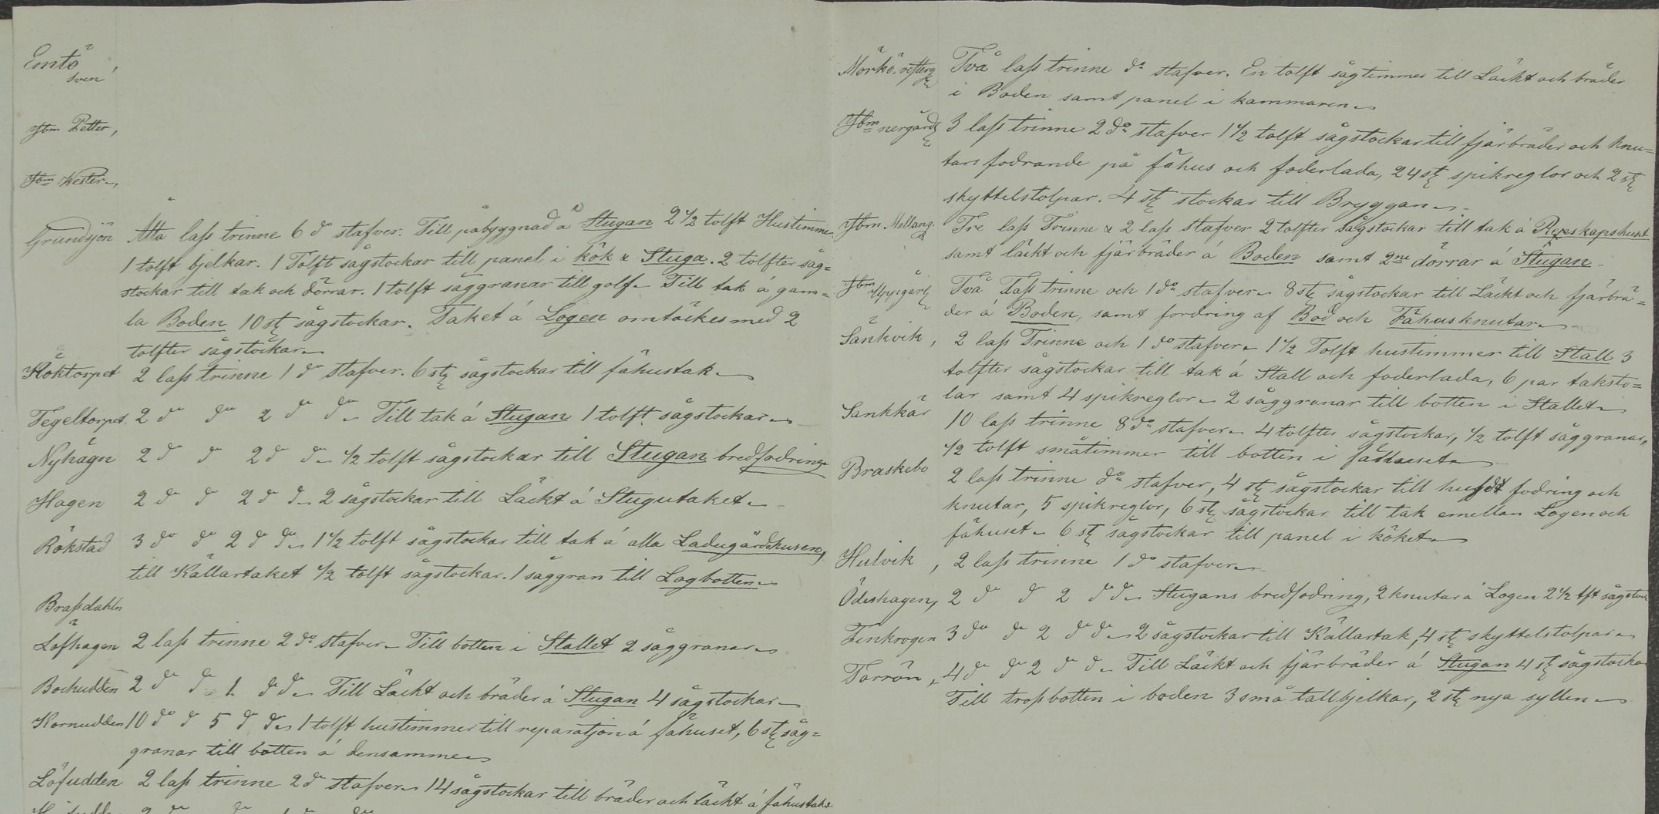 Emtö
Sven,
Jbm Petter,
Jbm Wester
Grundsjön Åtta lass trinne 6 do stafver. Till påbyggnad å Stugan 2 1/2 tolft Hustimmer
1 tolft bjelkar. 1 Tolft sågstockar till panel i kök & Stuga. 2 tolfter såg=
stockar till tak och dörrar. 1 tolft såggranar till golf. Till tak a gam=
la Boden 10 st sågstockar. Taket å Logen omtäckes med 2
tolfter sågstockar
Röktorpet 2 lass trinne 1 do stafver. 6 st sågstockar till fähustak.
Tegeltorpet 2 do do 2 do do Till tak å Stugan 1 tolft sågstockar
Nyhagn 2 do do 2 do do 1/2 tolft sågstockar till Stugan bredfodring
Hagen 2 do do 2 do do 2 sågstockar till Läckt å Stugutaket
Rökstad 3 do do 2 do do 1 1/2 tolft sågstockar till tak å alla Ladugårdshusen,
till Källartaket 1/2 tolft sågstockar. 1 såggran till Logbotten
Brassdahln
Löfhagen 2 lass trinne 2 do stafver. Till botten i Stallet 2 såggranar
Bockudden 2 do do 1 do do Till Läckt och bräder å Stugan 4 sågstockar
Kornudden 10 do do 5 do do 1 tolft hustimmer till reparation å fähuset, 6 st såg=
granar till botten å densamme
Löfudden 2 lass trinne 2 do stafver 14 sågstockar till bräder och läckt å fähustake
Mörkö Två lass trinne do stafver. En tolft sågtimmer till Läckt och bräder
i Boden samt panel i kammaren
Jbm nergård 3 lass trinne 2 do stafver 1 1/2 tolft sågstockar till fjärbräder och knu=
tars fodrande på fähus och foderlada, 24 st spikreglor och 2 st
skyttelstolpar. 4 st stockar till Bryggan
Jbm Mellang Tre lass Trinne & 2 lass stafver 2 tolfter Sågstockar till tak å Redskapshuset
samt läckt och fjärbräder å Boden samt 2ne dörrar å Stugan
Jbm Två lass trinne och 1 do stafver 8 st sågstockar till Läckt och fjärbrä=
der å Boden, samt fordring af Bod och Fähusknutar
Sänkvik, 2 lass Trinne och 1 do stafver 1 1/2 Tolft hustimmer till Stall 3
tolfter sågstockar till tak a Stall och foderlada, 6 par taksto=
lar samt 4 spikreglor 2 såggranar till botten i Stallet
Sankkär 10 lass trinne 8 do stafver 4 tolfter sågstockar, 1/2 tolft såggranar,
1/2 tolft småtimmer till botten i fähuset
Braskebo 2 lass trinne do stafver, 4 st sågstockar till fodring och
knutar, 5 spikreglor, 6 st sågstockar till tak emellan Logen och
fähuset 6 st sågstockar till panel i köket
Hulvik, 2 lass trinne 1 do stafver
Ödeshagen, 2 do do 2 do do Stugans bredfodring, 2 knutar å Logen 2 1/2 tft sågstock
Finkrogen 3 do do 2 do do 2 sågstockar till Källartak, 4 st skyttelstolpar
Torrön, 4 do do 2 do do Till Läckt och fjärbräder å Stugan 4 st sågstockar
Till trossbotten i boden 3 små tallbjelkar, 2 st nya syllen